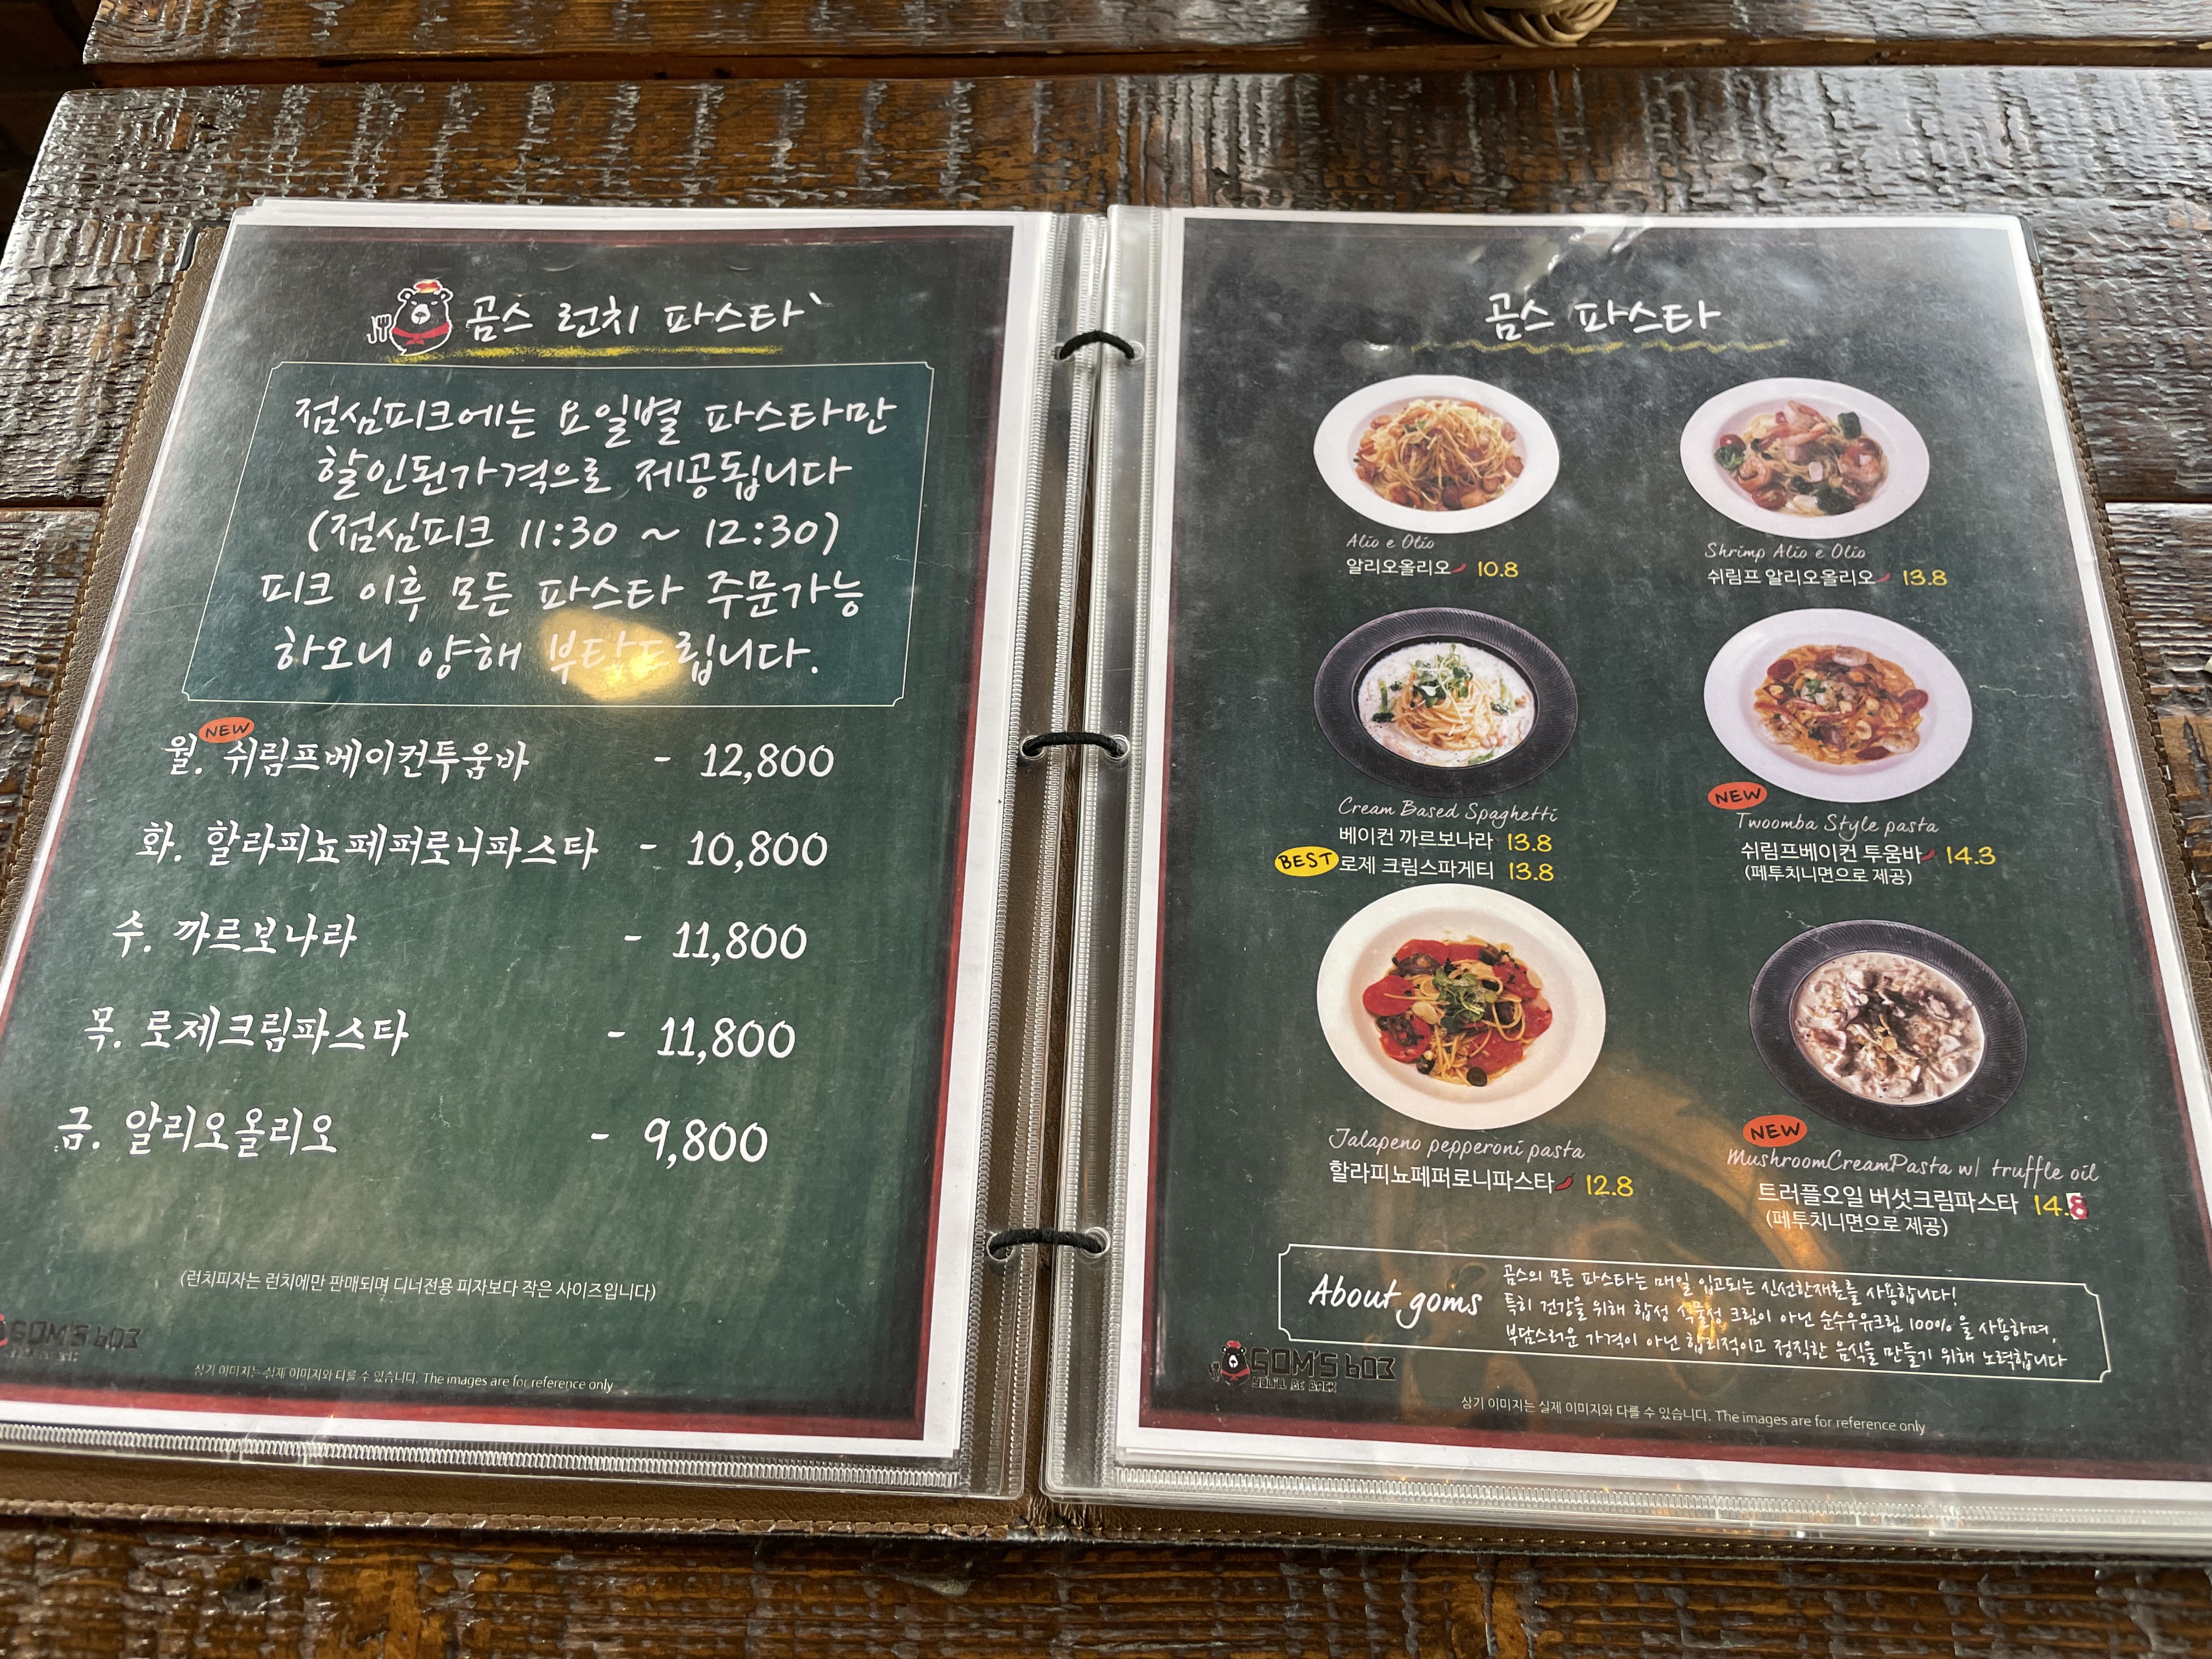 곰스 런치 파스타`
점심피크에는 요일별 파스타만
할인된가격으로 제공됩니다
(점심피크 11:30 ~ 12:30)
피크 이후 모든 파스타 주문가능
하오니 양해 부탁드립니다.
NEW
월. 쉬림프베이컨투움바 - 12,800
화. 할라피뇨페퍼로니파스타 - 10,800
수. 까르보나라 - 11,800
목. 로제크림파스타 - 11,800
금. 알리오올리오 - 9,800
(런치피자는 런치에만 판매되며 디너전용 피자보다 작은 사이즈입니다)
GOM'S 603
상기 이미지는 실제 이미지와 다를 수 있습니다. The images are for reference only
곰스 파스타
Alio e Olio
알리오올리오 10.8
Shrimp Alio e Olio
쉬림프 알리오올리오 13.8
Cream Based Spaghetti
베이컨 까르보나라 13.8
BEST 로제 크림스파게티 13.8
NEW
Twoomba Style pasta
쉬림프베이컨 투움바 14.3
(페투치니면으로 제공)
Jalapeno pepperoni pasta
할라피뇨페퍼로니파스타 12.8
NEW
MushroomCreamPasta w/ truffle oil
트러플오일 버섯크림파스타 14.8
(페투치니면으로 제공)
About goms
곰스의 모든 파스타는 매일 입고되는 신선한재료를 사용합니다!
특히 건강을 위해 합성 식물성 크림이 아닌 순수우유크림 100% 을 사용하며,
부담스러운 가격이 아닌 합리적이고 정직한 음식을 만들기 위해 노력합니다
GOM'S 603
YOU'LL BE BACK
상기 이미지는 실제 이미지와 다를 수 있습니다. The images are for reference only